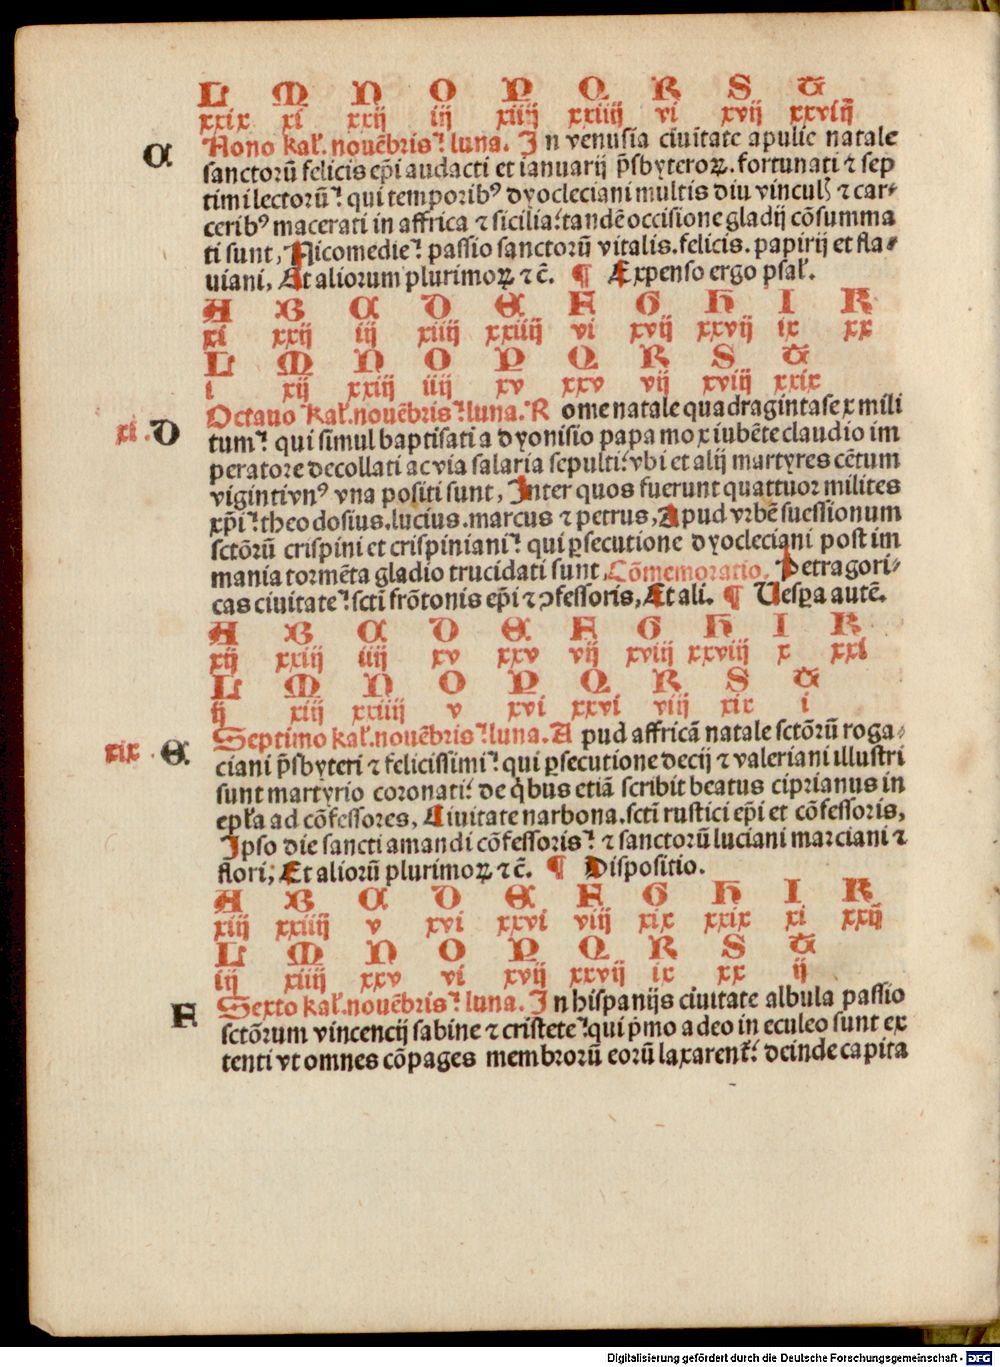 L M N O P Q R S T
xxix xi xxij iij xiiij xxiiij vi xvij xxviij
C Nono kal̛. nouēbris. luna. In venusia ciuitate apulie natale
sanctorū felicis ep̄i audacti et ianuarij p̄sbyteroꝝ. fortunati ⁊ sep
timi lectorū. qui temporibꝰ dyocleciani multis diu vincul̛ ⁊ car-
ceribꝰ macerati in affrica ⁊ sicilia: tandē occisione gladij cōsumma
ti sunt, Nicomedie. passio sanctorū vitalis. felicis. papirij et fla-
uiani, Et aliorum plurimoꝝ ⁊ c̄. ¶ Expenso ergo psal̛.
A B C D E F G H I K
xi xxij iij xiiij xxiiij vi xvij xxvij ix xx
L M N O P Q R S T
i xij xxiij iiij xv xxv vij xviij xxix
xi. D Octauo kal̛. nouēbris. luna. Rome natale quadraginta sex mili
tum. qui simul baptisati a dyonisio papa mox iubēte claudio im
peratore decollati ac via salaria sepulti: vbi et alij martyres cētum
viginti vnꝰ vna positi sunt, Inter quos fuerunt quattuor milites
xp̄i. theodosius. lucius. marcus ⁊ petrus, Apud vrbē suessionum
sctōrū crispini et crispiniani. qui ꝑsecutione dyocleciani post im
mania tormēta gladio trucidati sunt, Cōmemoratio. Petragori-
cas ciuitate. scti frōtonis ep̄i ⁊ ꝯfessoris, Et ali. ¶ Uesꝑa autē.
A B C D E F G H I K
xij xxiij iiij xv xxv vij xviij xxviij x xxi
L M N O P Q R S T
ij xiij xxiiij v xvi xxvi viij xix i
xix. E Septimo kal̛. nouēbris. luna. Apud affricā natale sctōrū roga-
ciani p̄sbyteri ⁊ felicissimi. qui ꝑsecutione decij ⁊ valeriani illustri
sunt martyrio coronati: de qͥbus etiā scribit beatus ciprianus in
epl̛a ad cōfessores, Ciuitate narbona. scti rustici ep̄i et cōfessoris,
Ipso die sancti amandi cōfessoris. ⁊ sanctorū luciani marciani ⁊
flori; Et aliorū plurimoꝝ ⁊ c̄. ¶ Dispositio.
A B C D E F G H I K
xiij xxiiij v xvi xxvi viij xix xxix xi xxij
L M N O P Q R S T
iij xiiij xxv vi xvij xxvij ix xx ij
F Sexto kal̛. nouēbris. luna. In hispanijs ciuitate albula passio
sctōrum vincencij sabine ⁊ cristete. qui pͥmo adeo in eculeo sunt ex
tenti vt omnes cōpages membrorū eorū laxarent̛: deinde capita
Digitalisierung gefördert durch die Deutsche Forschungsgemeinschaft - DFG